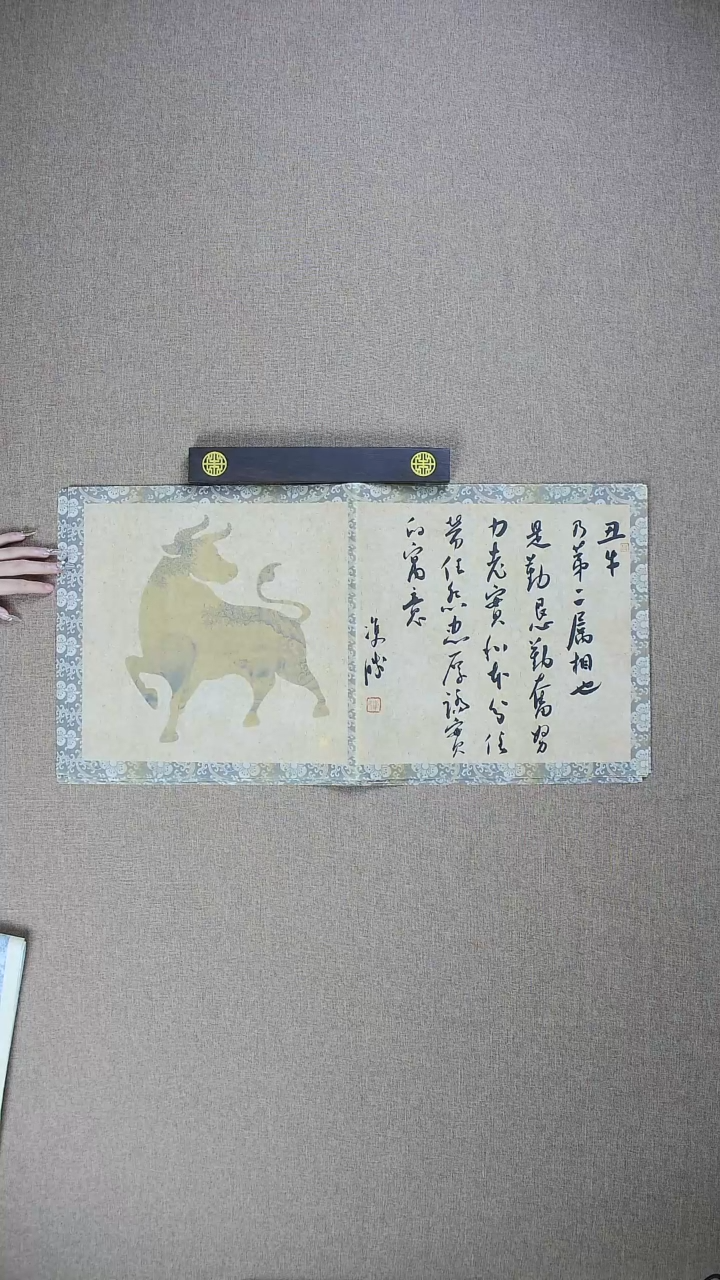 丑牛
乃第二属相也
是勤恳勤奋努
力老实和本分任
劳任怨忠厚诚实
的寓意